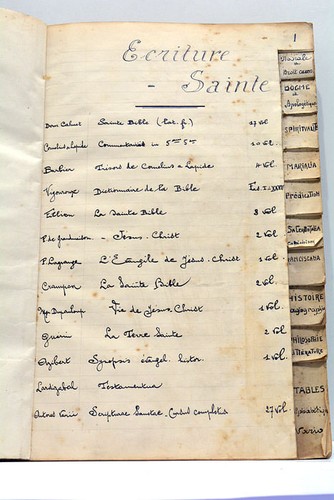 1
Ecriture
- Sainte
Dom Calmet Sainte Bible (Lat. f.) 27 Vol
Cornelius a Lapide Commentarii in Sam Sam 20 Vol.
Barbier Trésors de Cornelius a Lapide 4 Vol.
Vigouroux Dictionnaire de la Bible
Fillion La Sainte Bible 8 Vol
P. de Grandmaison - Jésus. Christ 2 Vol.
P. Lagrange L'Evangile de Jésus. Christ 1 Vol.
Crampon La Sainte Bible 2 Vol.
Mgr Dupanloup Vie de Jésus. Christ 1 Vol.
Guérin La Terre Sainte 2 Vol.
Synopsis évangel. histor. 1 Vol.
Lardizabal Testamentum
Scripturae Sanctae Cursus completus 27 Vol.
Morale
&
Droit canon
DOGME
&
Apologétique
SPIRITUALITÉ
MARIALIA
Prédication
Catéchismes
FRANCISCANA
HISTOIRE
Hagiographie
PHILOSOPHIE
LITTÉRATURE
TABLES
Varia